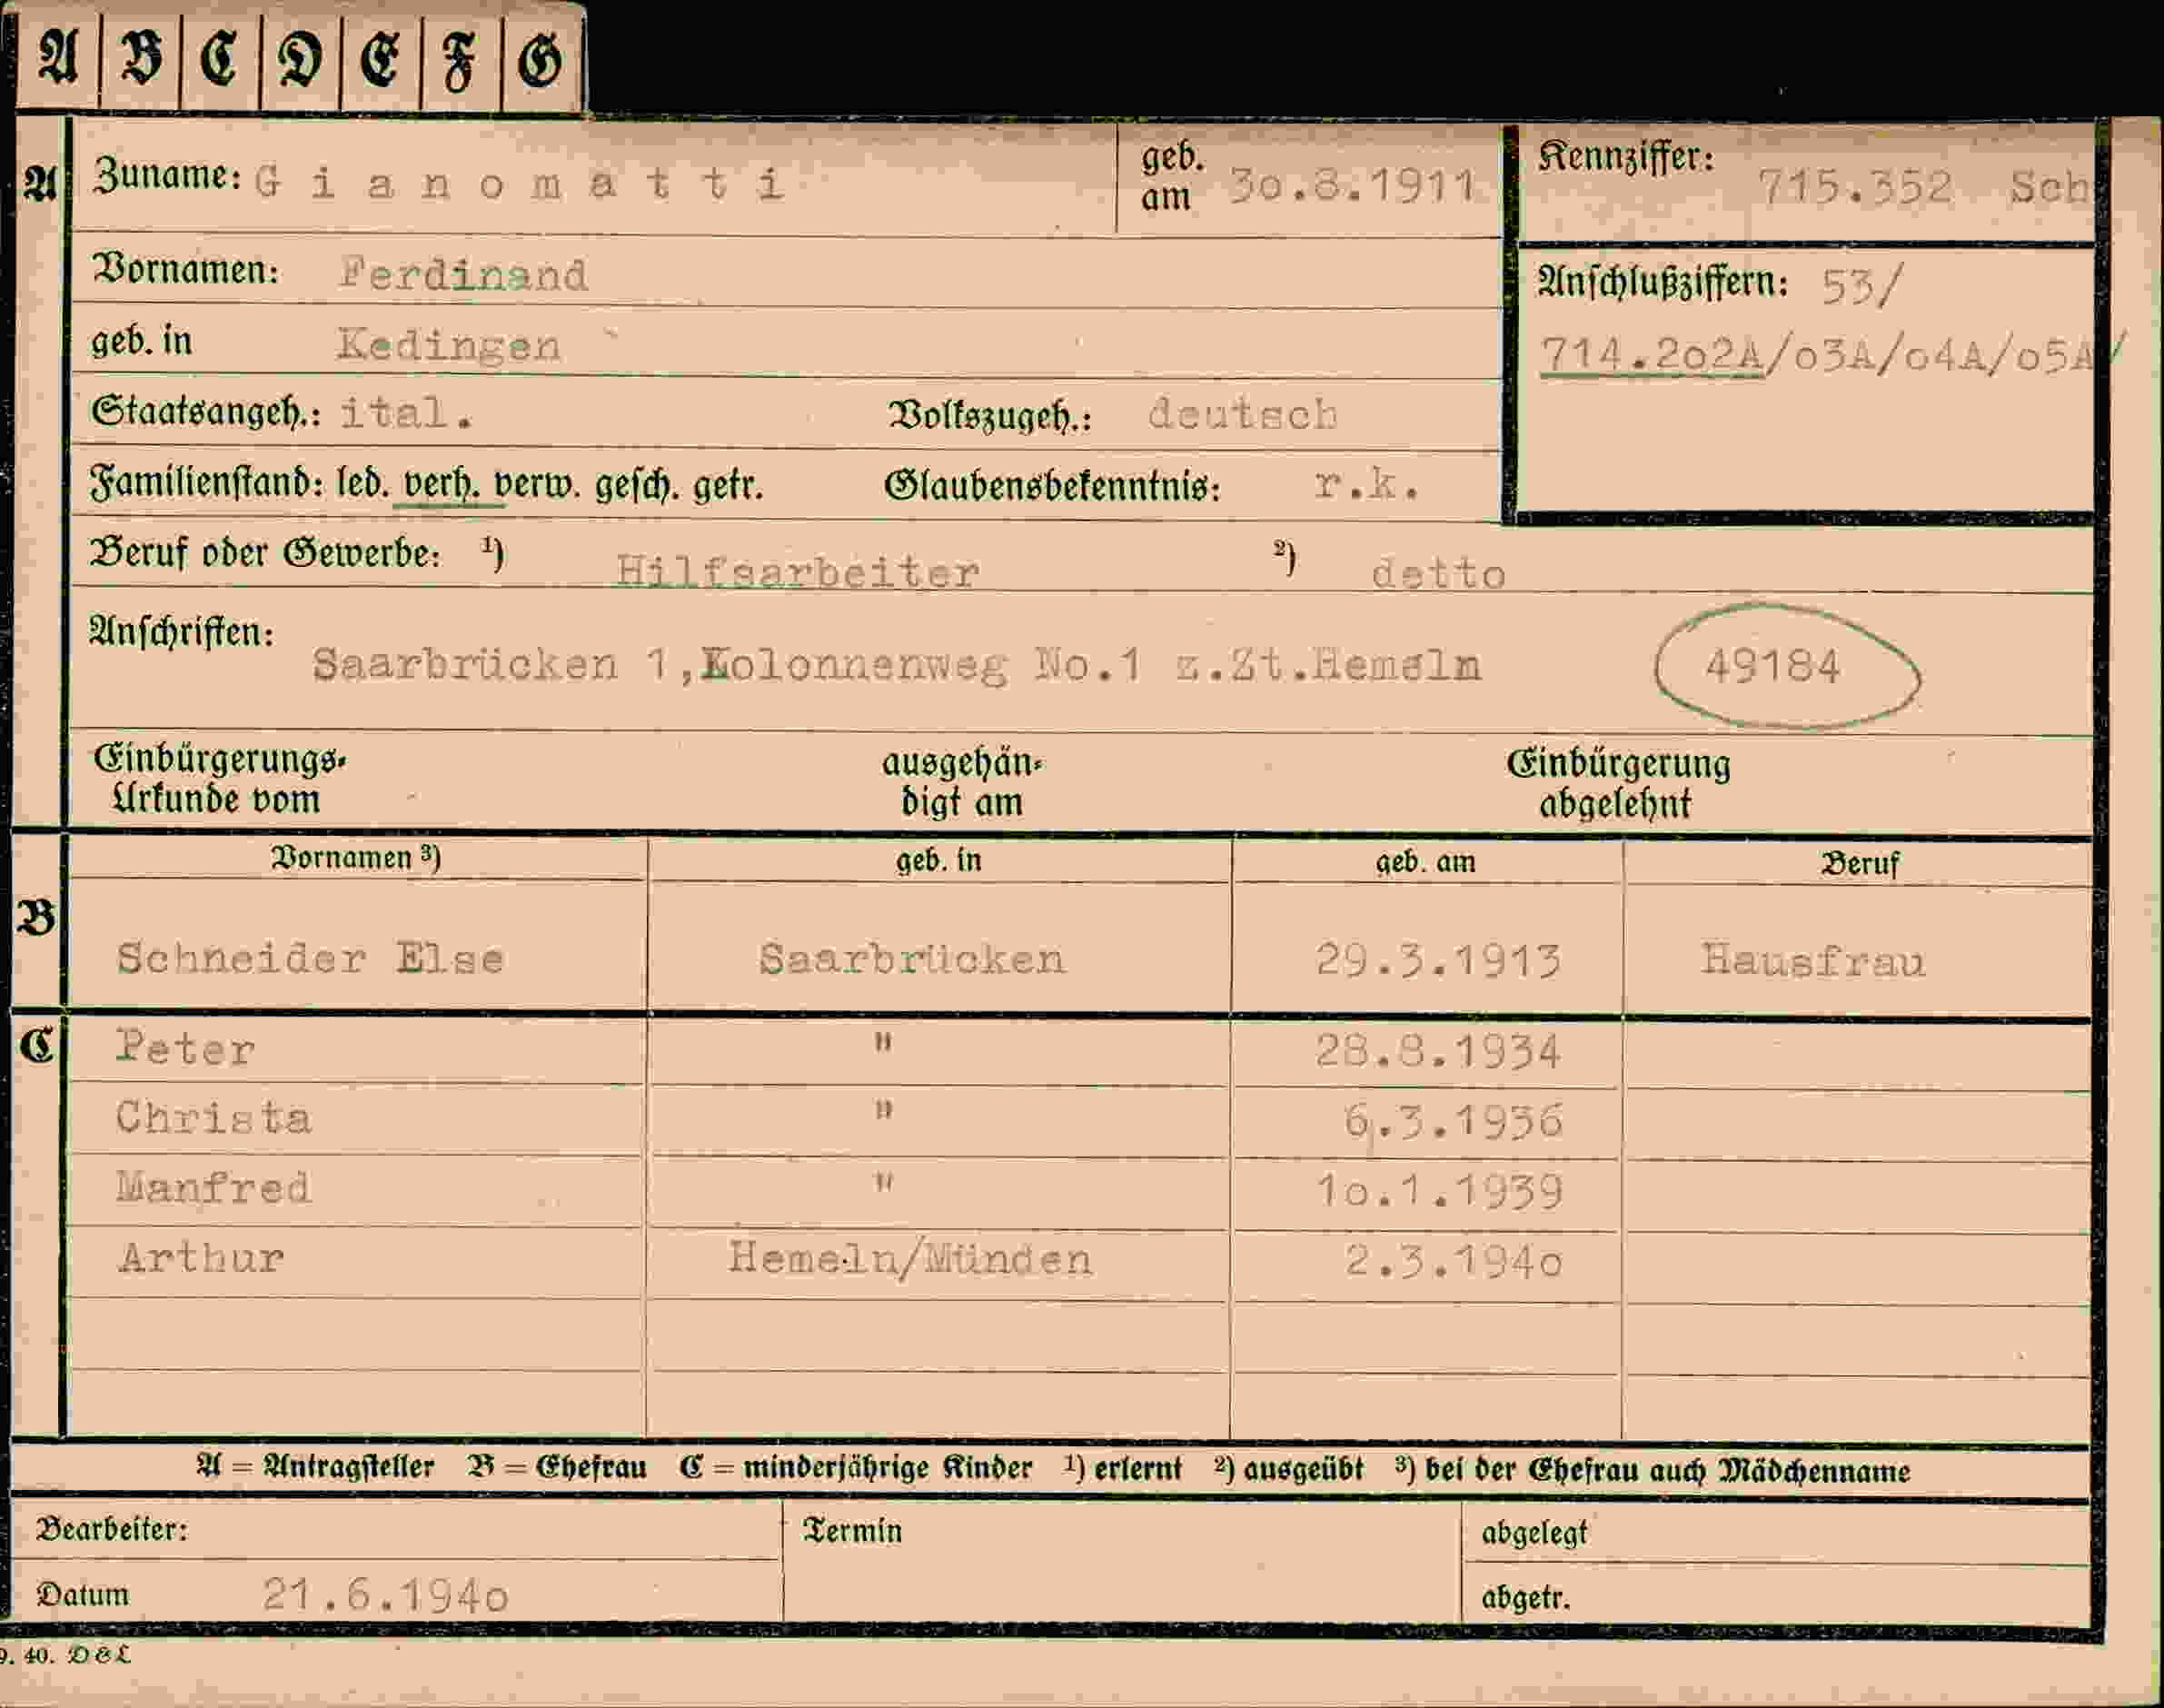 A B C D E F G
A Zuname: Gianomatti geb. am 3o.8.1911 Kennziffer: 715.352 Sch
Vornamen: Ferdinand Anschlußziffern: 53/
geb. in Kedingen 714.2o2A/o3A/o4A/o5A/
Staatsangeh.: ital. Volkszugeh.: deutsch
Familienstand: led. verh. verw. gesch. getr. Glaubensbekenntnis: r.k.
Beruf oder Gewerbe: 1) Hilfsarbeiter 2) detto
Anschriften: Saarbrücken 1,Kolonnenweg No.1 z.Zt.Hemeln 49184
Einbürgerungs- ausgehän- Einbürgerung
Urkunde vom digt am abgelehnt
B Vornamen 3) geb. in geb. am Beruf
Schneider Else Saarbrücken 29.3.1913 Hausfrau
C Peter " 28.8.1934
Christa " 6.3.1936
Manfred " 1o.1.1939
Arthur Hemeln/Münden 2.3.194o
A = Antragsteller B = Ehefrau C = minderjährige Kinder 1) erlernt 2) ausgeübt 3) bei der Ehefrau auch Mädchenname
Bearbeiter: Termin abgelegt
Datum 21.6.194o abgetr.
9. 40. D&L